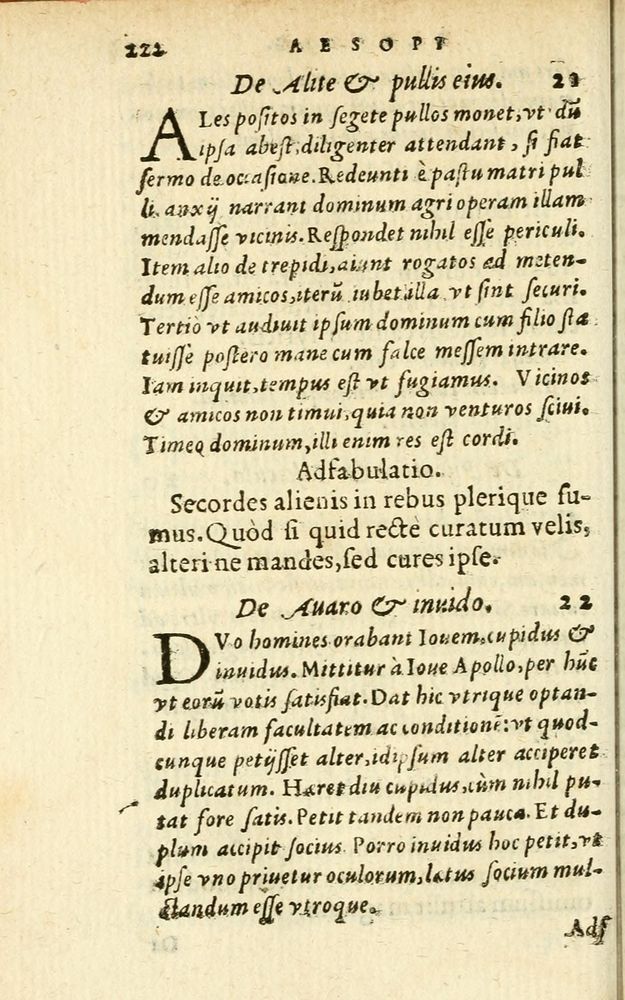 222 AESOPI
De Alite & pullis eius. 21
ALes positos in segete pullos monet, vt dũ
ipsa abest, diligenter attendant, si fiat
sermo de occasione. Redeunti è pastu matri pul
li anxij narrant dominum agri operam illam
mendasse vicinis. Respondet nihil esse periculi.
Item alio de trepidi, aiunt rogatos ad meten-
dum esse amicos, iterũ iubet illa vt sint securi.
Tertiò vt audiuit ipsum dominum cum filio sta
tuisse postero mane cum falce messem intrare.
Iam inquit, tempus est vt fugiamus. Vicinos
& amicos non timui, quia non venturos sciui.
Timeo dominum, illi enim res est cordi.
Adfabulatio.
Secordes alienis in rebus plerique su-
mus. Quòd si quid recte curatum velis,
alteri ne mandes, sed cures ipse.
De Auaro & inuido. 22
DVo homines orabant Iouem, cupidus &
inuidus. Mittitur à Ioue Apollo, per hũc
vt eorũ votis satisfiat. Dat hic vtrique optan-
di liberam facultatem ac conditionẽ: vt quod-
cunque petijsset alter, idipsum alter acciperet
duplicatum. Hæret diu cupidus, cùm nihil pu-
tat fore satis. Petit tandem non pauca. Et du-
plum accipit socius. Porro inuidus hoc petit, vt
ipse vno priuetur oculorum, lætus socium mul-
ctandum esse vtroque.
Adf